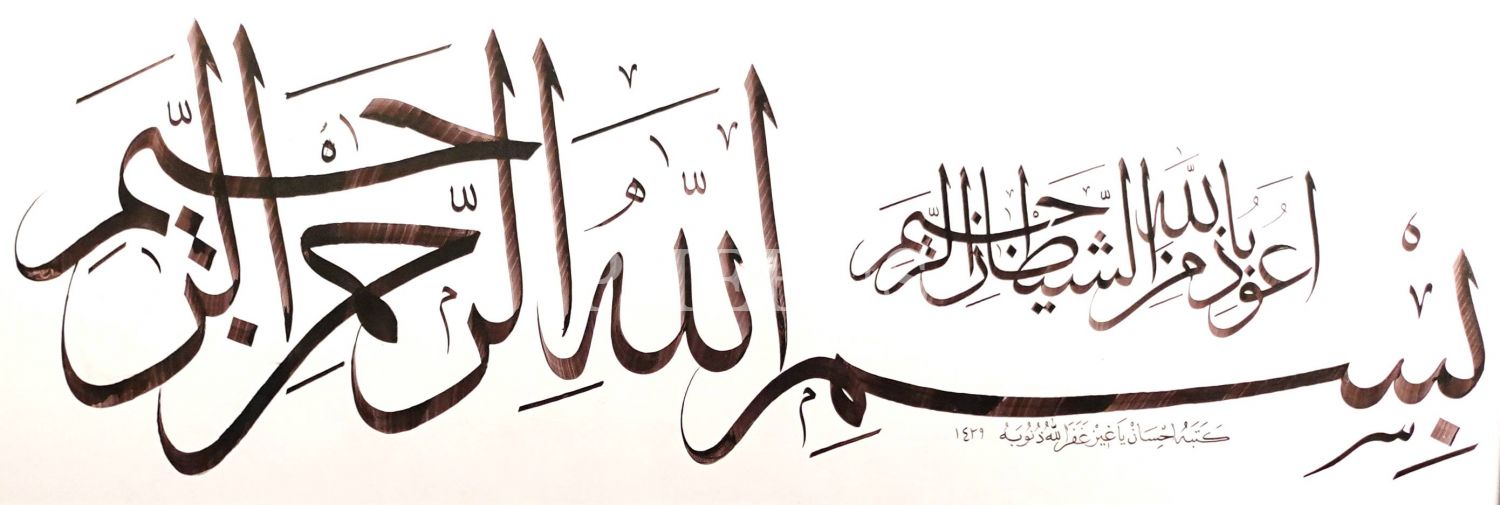 اعوذ بالله من الشيطان الرجيم
بِسْمِ اللهِ الرَّحْمنِ الرَّحِيمِ
كتبه احسان ياغيز غفر الله ذنوبه ١٤٢٩